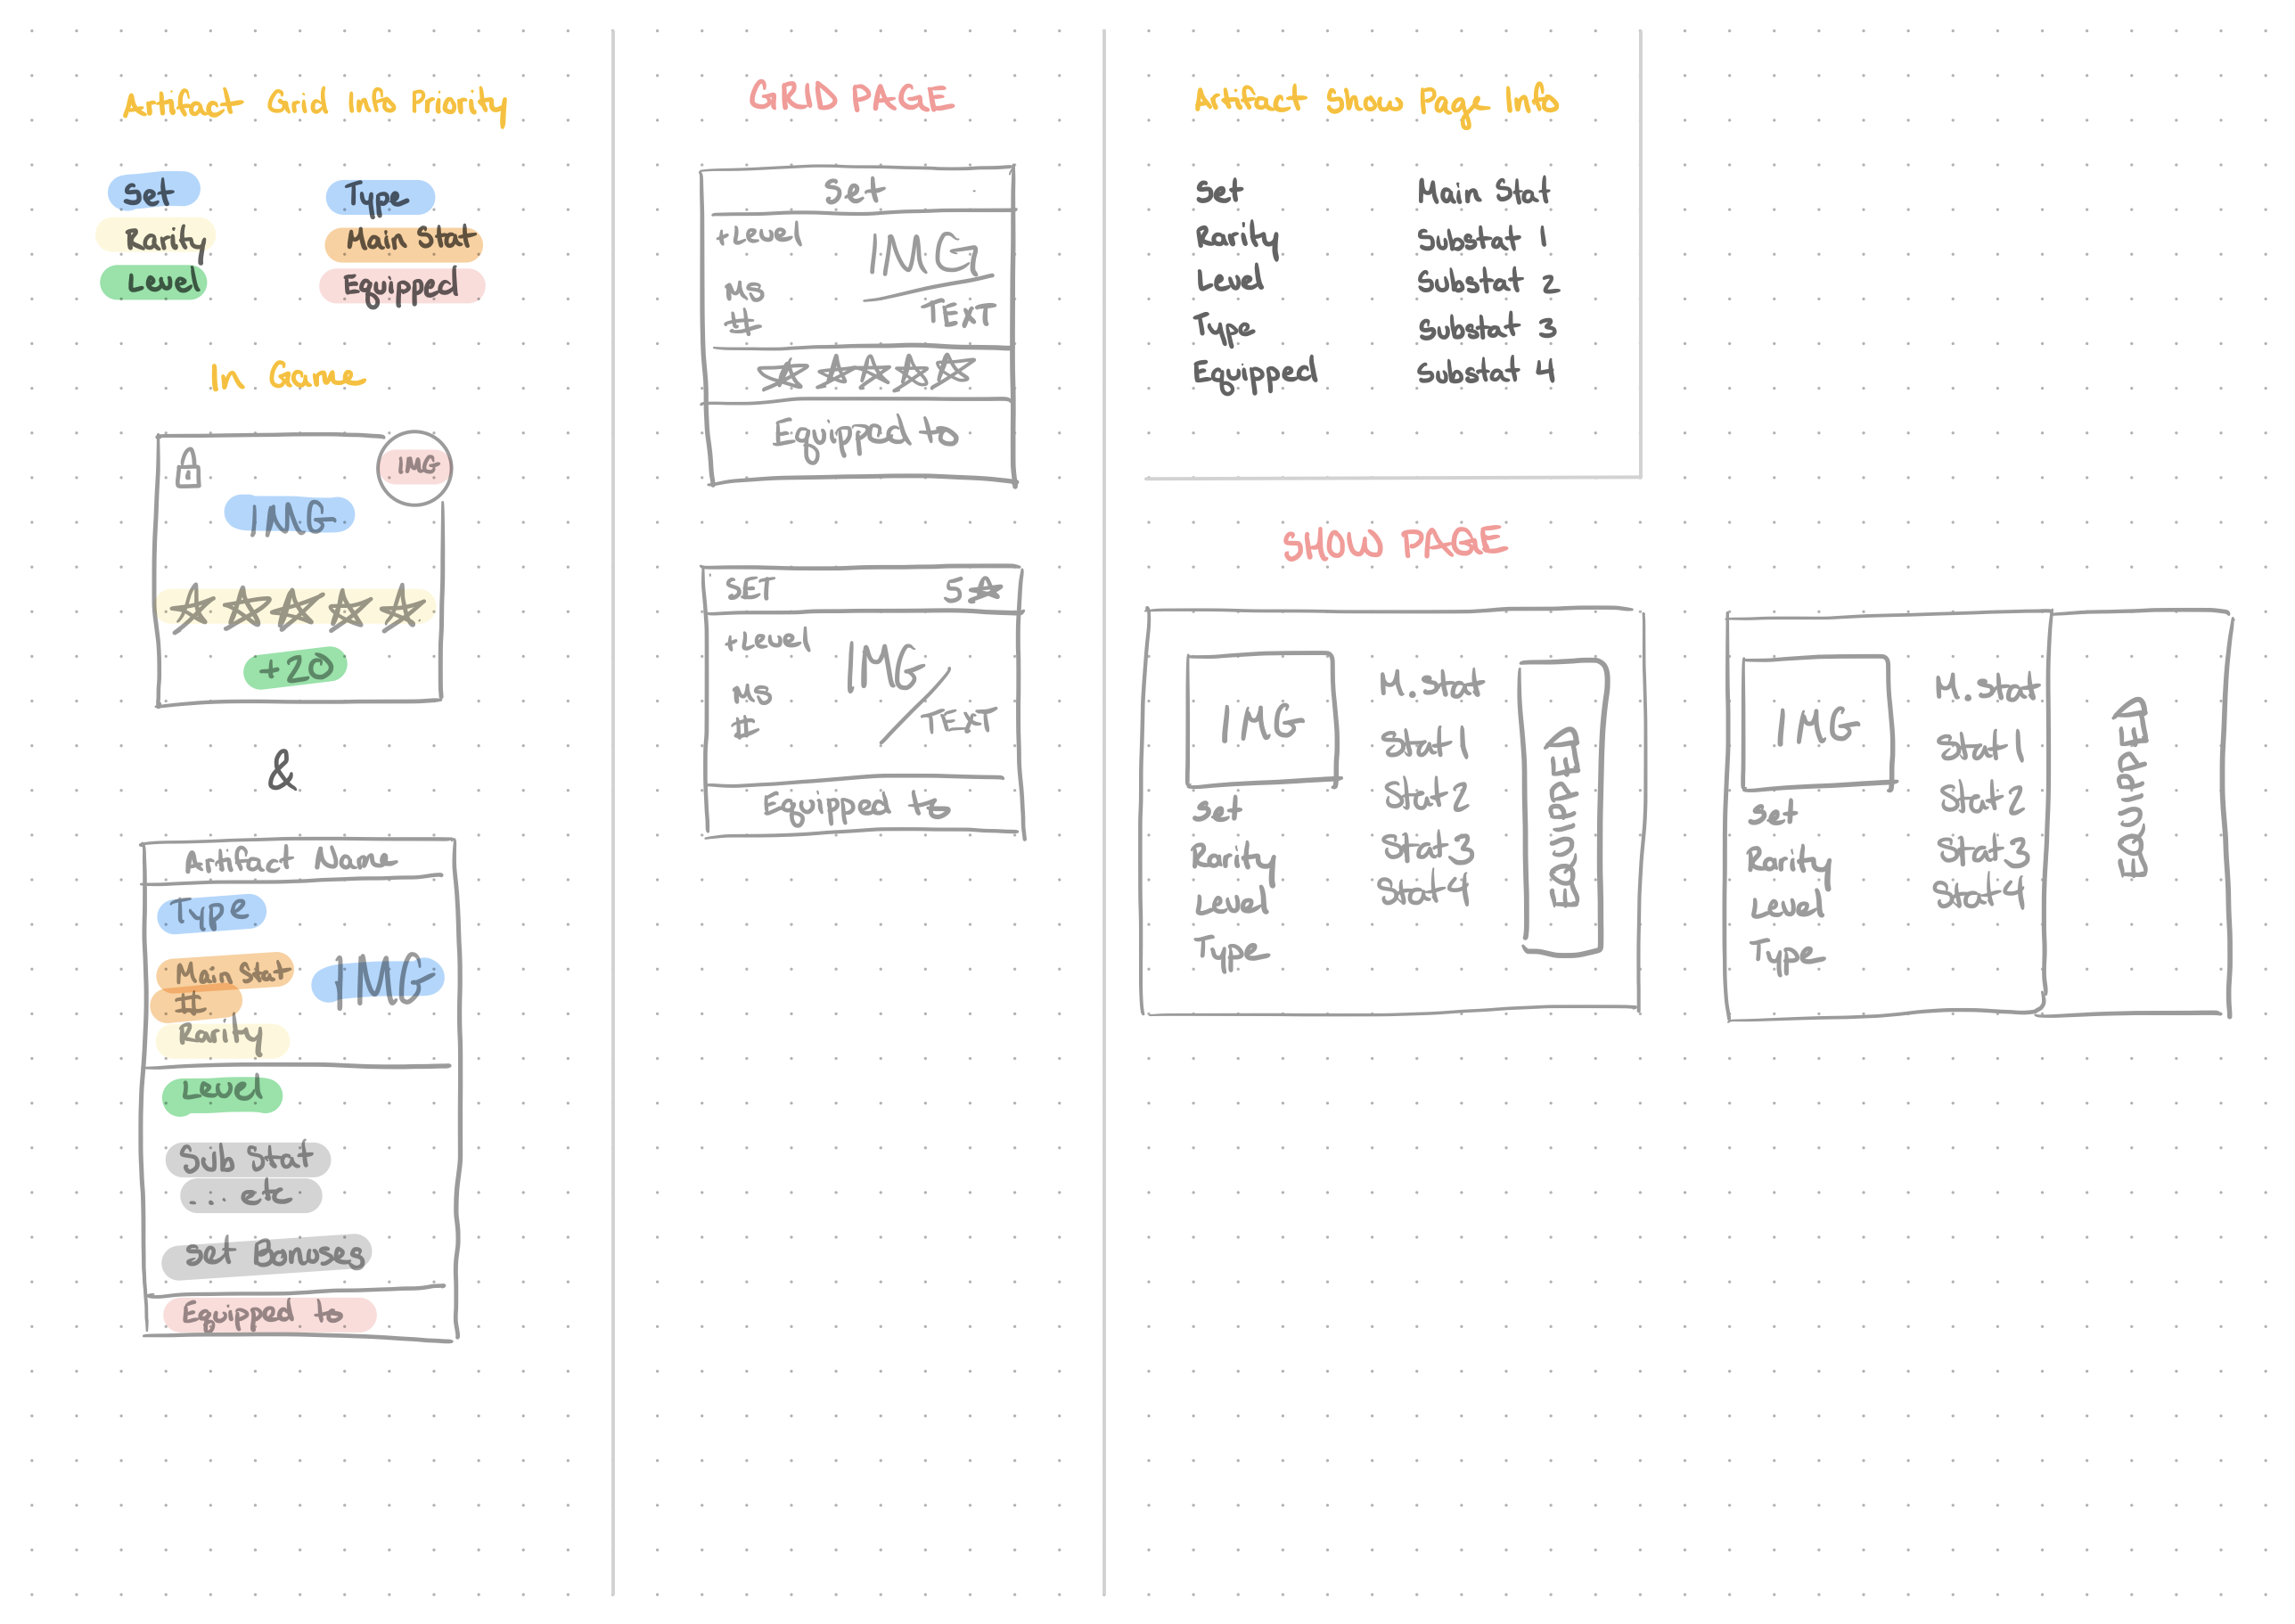 Artifact Grid Info Priority
Set
Type
Rarity
Main Stat
Level
Equipped
In Game
IMG
IMG
+20
&
Artifact Name
Type
Main Stat
#
IMG
Rarity
Level
Sub Stat
... etc
Set Bonuses
Equipped to
GRID PAGE
Set
+Level
IMG
MS
#
TEXT
Equipped to
SET
5
+Level
IMG
MS
#
TEXT
Equipped to
Artifact Show Page Info
Set
Main Stat
Rarity
Substat 1
Level
Substat 2
Type
Substat 3
Equipped
Substat 4
SHOW PAGE
IMG
Set
Rarity
Level
Type
M.Stat
Stat1
Stat2
Stat3
Stat4
EQUIPPED
IMG
Set
Rarity
Level
Type
M.Stat
Stat1
Stat2
Stat3
Stat4
EQUIPPED